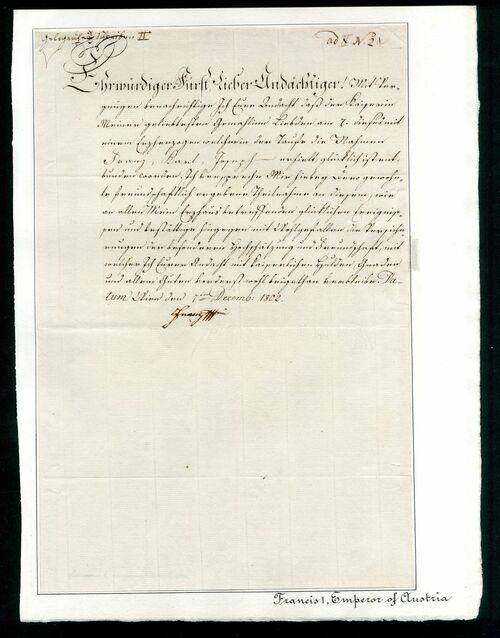 Gelegenheits Schreiben IV
ad V N 2
Ehrwürdiger Fürst, Lieber Andächtiger! Mit Ver-
gnügen benachrichtige Ich Eure Andacht daß der Kaiserin
Meiner geliebtesten Gemahlin Liebden am 7. dieses mit
einem Erzherzoge welcher in der Taufe die Nahmen
Franz, Karl, Joseph — erhielt, glücklich ist ent-
bunden worden. Ich verspreche Mir hiebey Dero gewohn-
te freundschaftlich ergebene Theilnahme an diesem, wie
an allen Mein Erzhaus betreffenden glücklichen Ereignis-
sen und bestättige hingegen mit Wohlgefallen die Versiche-
rungen der besonderen Hochschätzung und Freundschaft, mit
welcher Ich Eurer Andacht mit Kaiserlichen Hulden, Gnaden
und allem Guten vorderst wohl beigethan verbleibe. Da-
tum Wien den 7ten Decemb: 1802.
Franz
Francis I, Emperor of Austria